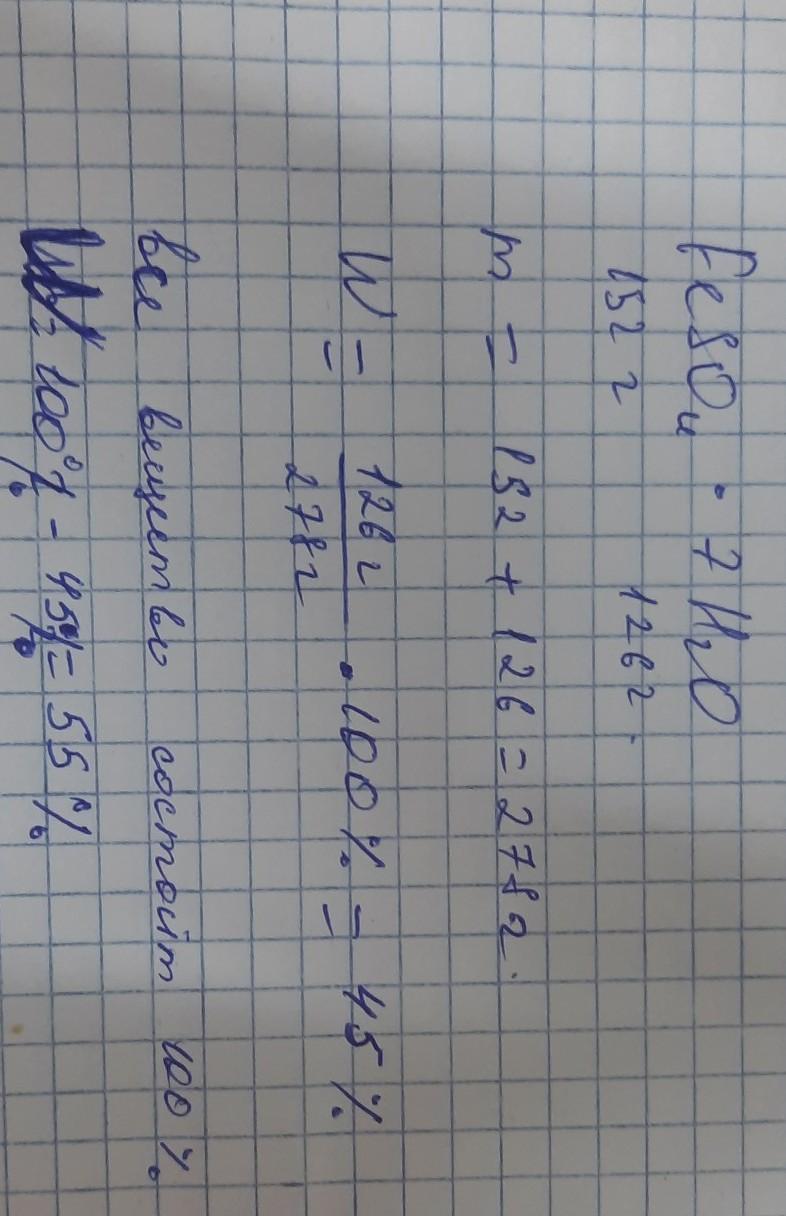 FeSO₄ · 7 H₂O
152 г 126 г.
m = 152 + 126 = 278 г.
W = 126 г / 278 г · 100 % = 45 %
все вещество состоит 100 %
= 100 % - 45 % = 55 %